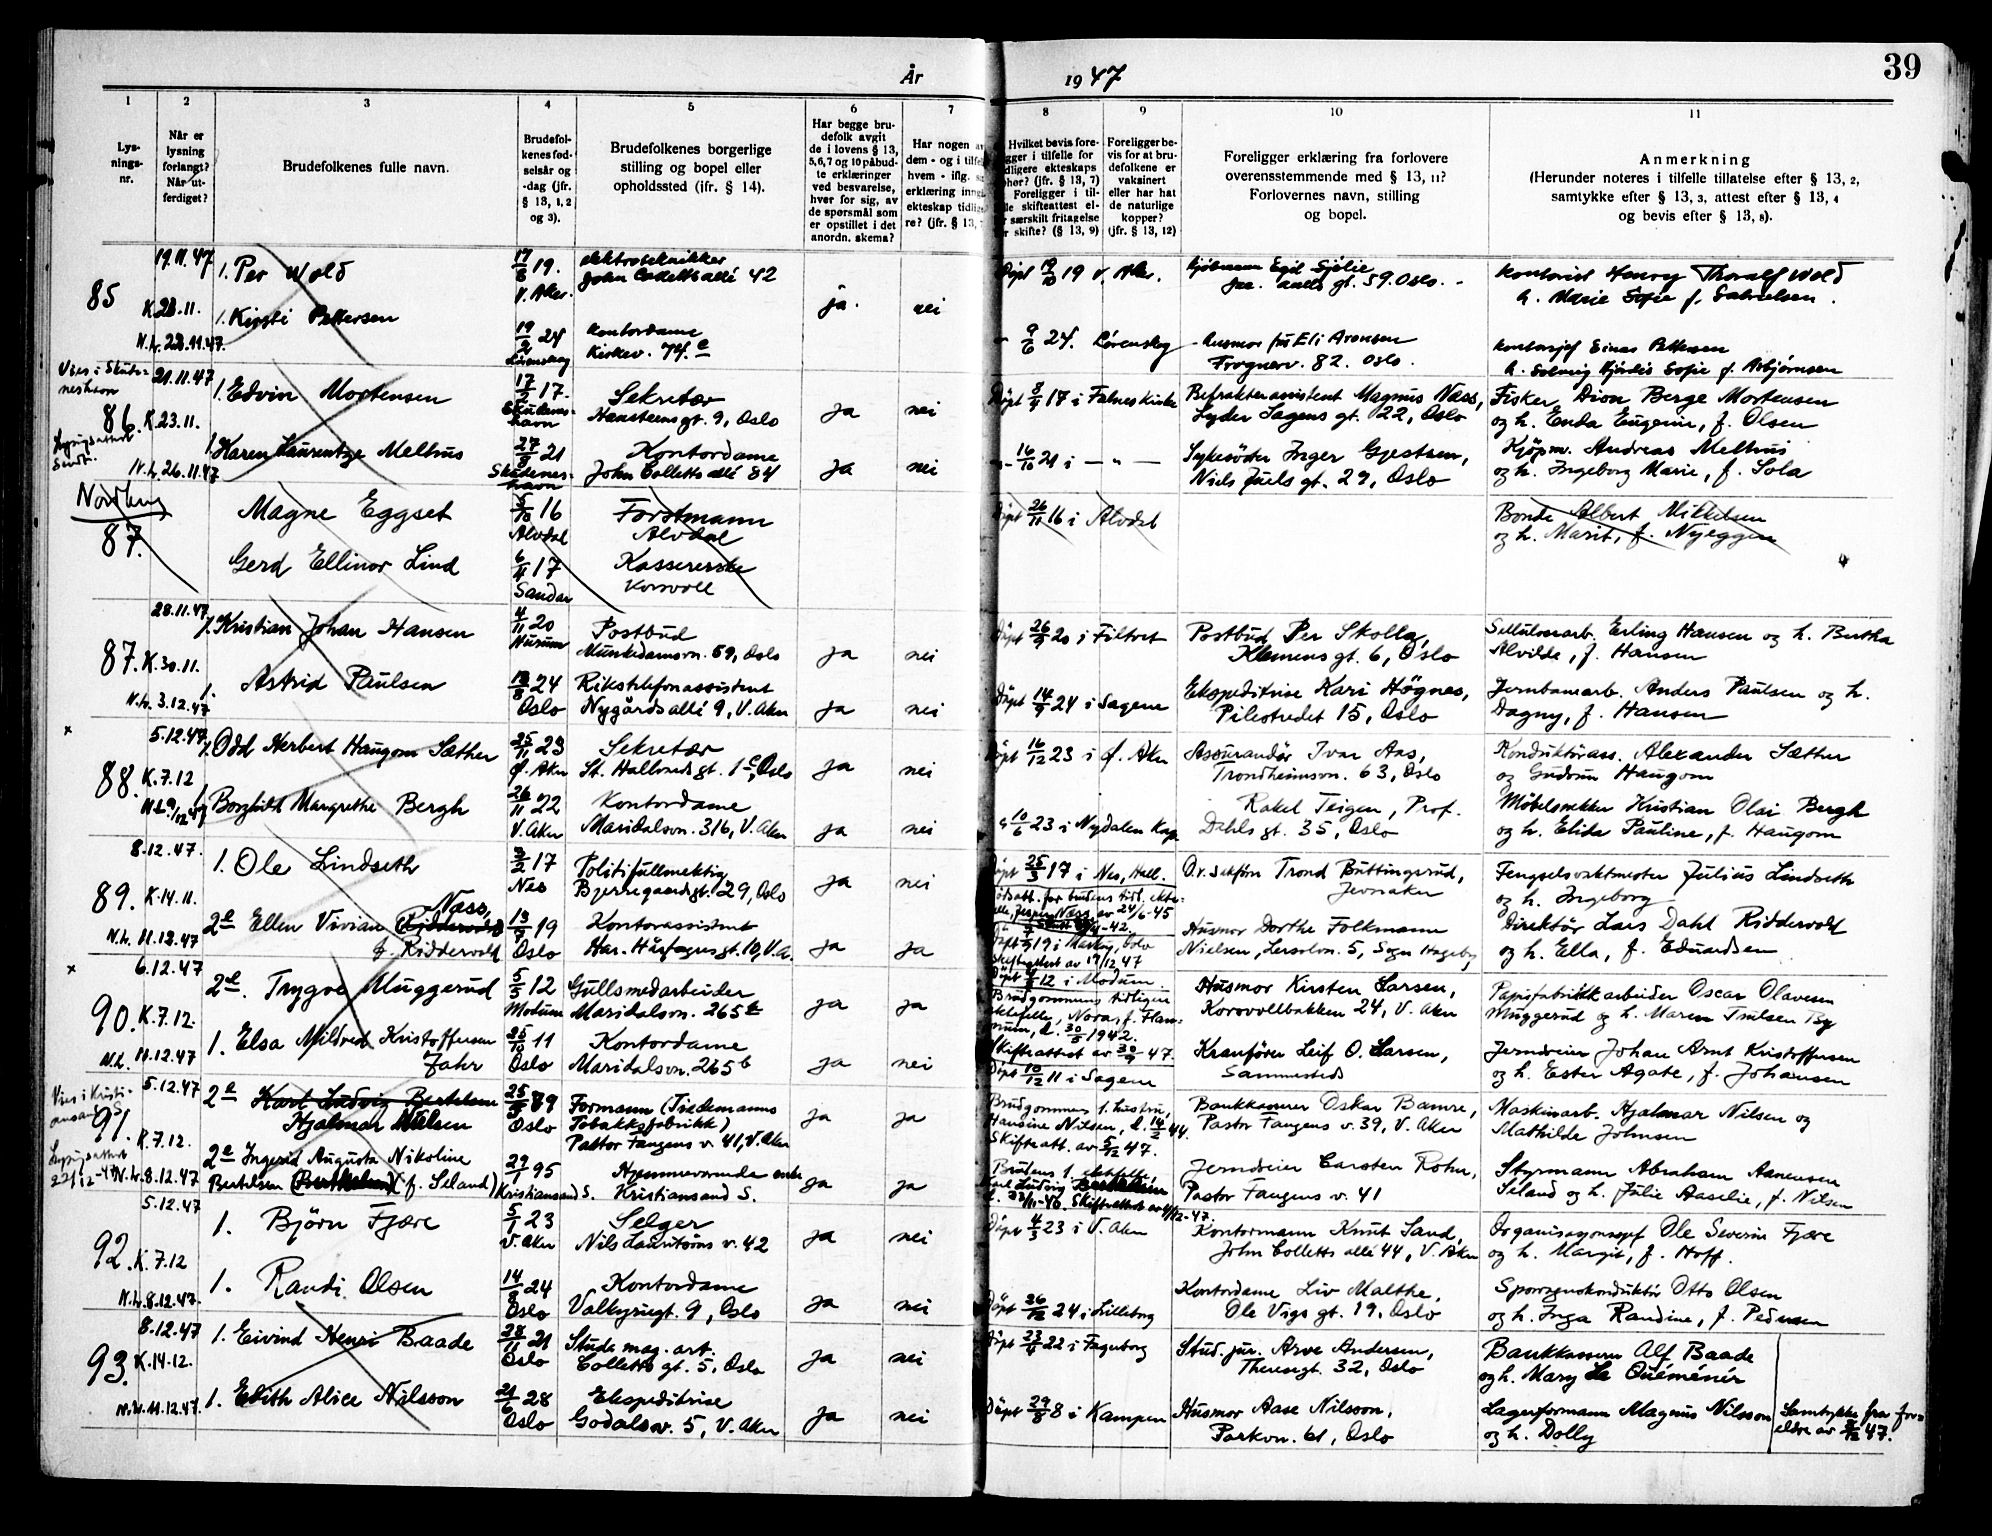 39
År 1947
1
2
3
4
5
6
7
8
9
10
11
Lys-
nings-
nr.
Når er
lysning
forlangt?
Når ut-
ferdiget?
Brudefolkenes fulle navn.
Brudefol-
kenes fød-
selsår og
-dag (jfr.
§ 13, 1, 2
og 3).
Brudefolkenes borgerlige
stilling og bopel eller
opholdssted (jfr. § 14).
Har begge bru-
defolk avgit
de i lovens § 13,
5,6,7 og 10 påbud-
te erklæringer
ved besvarelse,
hver for sig, av
de spørsmål som
er opstillet i det
anordn. skema?
Har nogen
dem - og i tilfel
hvem - iflg.
erklæring inng
ekteskap tidlig
re? (jfr. § 13,
Hvilket bevis fore-
gger i tilfelle for
dligere ekteskaps
phør? (jfr. § 13, 7)
Foreligger i til-
le skifteattest el-
r særskilt fritagelse
r skifte? (§ 13, 9)
Foreligger be-
vis for at bru-
defolkene er
vaksinert
eller har hat
de naturlige
kopper?
(jfr. § 13, 12)
Foreligger erklæring fra forlovere
overensstemmende med § 13, 11?
Forlovernes navn, stilling
og bopel.
Anmerkning
(Herunder noteres i tilfelle tillatelse efter § 13, 2,
samtykke efter § 13, 3, attest efter § 13, 4
og bevis efter § 13, 8).
85
19.11.47
1. Per Wold
17/6 19.
V. Aker.
elektrotekniker
John Colletts allé 42
ja.
nei
Døpt 19/10 19 V. Aker.
Egil Sjølie
gt. 59. Oslo.
kontorist Henry Thoralf Wold
h. Marie Sofie f. Gabrielsen.
K. 23.11.
N.L. 22.11.47.
1. Kirsti Pettersen
19/2 24
Lørenskog
kontordame
Kirkev. 74 c
9/6 24. Lørenskog
Husmor fru Eli Aronsen
Frognerv. 82. Oslo.
kontorsjef Einar Pettersen
h. Solveig Hjørdis Sofie f. Asbjørnsen
Vies i Skude-
neshavn
86.
21.11.47
1. Edvin Mortensen
17/2 17.
Skudenes-
havn
Sekretær
Hansteensgt. 9, Oslo
ja
nei
Døpt 8/4 17 i Falnes kirke
Befrakterassistent Magnus Næss,
Lyder Sagens gt. 22, Oslo
Fisker Dion Berge Mortensen
og h. Enda Eugenie, f. Olsen
K. 23.11.
N.L. 26.11.47
1. Karen Laurentze Melhus
27/9 21
Skudenes-
havn
Kontordame
John Colletts allé 84
ja
nei
16/10 21 i — „ —
Sykesøster Inger Gjestsen,
Niels Juels gt. 29, Oslo
Kjøpm. Andreas Melhus
og h. Ingeborg Marie, f. Sola
Nordberg
87.
Magne Eggset
5/10 16
Alvdal
Forstmann
Alvdal
Døpt 26/11 16 i Alvdal
Bonde Albert Mikkelsen
og h. Marit, f. Nyeggen
Gerd Ellinor Lind
6/4 17
Sandar
Kassererske
Korsvoll
87.
28.11.47
1. Kristian Johan Hansen
4/11 20
Hurum
Postbud
Munkedamsvn. 59, Oslo
ja
nei
Døpt 26/9 20 i Filtvet
Postbud Per Skolla,
Klemens gt. 6, Oslo
Sellulosearb. Erling Hansen og h. Bertha
Alvilde, f. Hansen
K. 30.11.
N.L. 3.12.47
1. Astrid Paulsen
13/8 24
Oslo
Rikstelefonassistent
Nygårds allé 9, V. Aker
ja
nei
Døpt 14/9 24 i Sagene
Ekspeditrise Kari Høgnes,
Pilestredet 15, Oslo
Jernbanearb. Anders Paulsen og h.
Dagny, f. Hansen
x
88.
5.12.47
1. Odd Herbert Haugom Sæther
25/11 23
Ø. Aker
Sekretær
St. Hallvardsgt. 1 c, Oslo
ja
nei
Døpt 16/12 23 i Ø. Aker
Assurandør Ivar Aas,
Trondheimsvn. 63, Oslo
Konduktørass. Alexander Sæther
og Gudrun Haugom
K. 7.12
N.L. 9/12 47
1. Borghild Margrethe Bergh
26/11 22
V. Aker
Kontordame
Maridalsvn. 316, V. Aker
ja
nei
10/6 23 i Nydalen Kap.
Rakel Teigen, Prof.
Dahls gt. 35, Oslo
Møbelsnekker Kristian Olai Bergh
og h. Elida Pauline, f. Haugom
89.
8.12.47.
1. Ole Lindseth
3/2 17
Nes
Politifullmektig
Bjerregaardsgt. 29, Oslo
ja
nei
Døpt 25/3 17 i Nes, Hall.
O.r. sakfører Trond Buttingsrud,
Jevnaker
Fengselsvaktmester Julius Lindseth
og h. Ingeborg
K. 14.11.
N.L. 11.12.47
2e Ellen Vivian Næss,
f. Riddervold
13/7 19
Oslo
Kontorassistent
Har. Hårfagresgt. 10, V.A.
ja
ja
av 24/6-45
19 i Oslo
Skifteattest av 19/12 47
Husmor Dorthe Folkmann
Nielsen, Lersolvn. 5, Sogn Hageby
Direktør Lars Dahl Riddervold
og h. Ella, f. Edvardsen
x
90.
6.12.47
2e. Trygve Muggerud
5/5 12
Modum
Gullsmedarbeider
Maridalsvn. 265 b
ja
ja
Døpt 12 i Modum
Brudgommens tidligere
ektefelle, Nora, f. Han-
d. 30/5 1942.
Skifteattest av 30/9 47.
Husmor Kirsten Larsen,
Korsvollbakken 24, V. Aker
Papirfabrikkarbeider Oscar Olavesen
Muggerud og h. Maren Trulsen By
K. 7.12.
N.L. 11.12.47
1. Elsa Mildred Kristoffersen
Jahr
25/10 11
Oslo
Kontordame
Maridalsvn. 265 b
ja
nei
Døpt 10/12 11 i Sagene
Kranfører Leif O. Larsen,
Sammesteds
Jerndreier Johan Arnt Kristoffersen
og h. Ester Agate, f. Johansen
Vies i Kristi-
ansand S.
91.
5.12.47
2e Karl Ludvig Bertelsen
Hjalmar Nilsen
25/3 89
Oslo
Formann (Tiedemanns
Tobakksfabrikk)
Pastor Fangens v. 41, V. Aker
ja
ja
Brudgommens 1. hustru,
Hansine Nilsen, d. 14/2 44.
Skifteatt. av 5/12 47.
Bankkasserer Oskar Bamre,
Pastor Fangens v. 39, V. Aker
Maskinarb. Hjalmar Nilsen og
Mathilde Johnsen
K. 7.12.
N.L. 8.12.47
2e Ingerid Augusta Nikoline
Bertelsen (f. Seland)
29/1 95
Kristiansand S.
Hjemmeværende enke
Kristiansand S.
ja
ja
Brudens 1. ektefelle,
Karl Ludvig Bertelsen
Skifteattest av 4/12-47.
Jerndreier Carsten Rohr,
Pastor Fangens v. 41
Styrmann Abraham Aanensen
Seland og h. Julie Aaselie, f. Nilsen
92.
5.12.47
1. Bjørn Fjære
5/1 23
V. Aker
Selger
Nils Lauritsøns v. 42
ja
nei
Døpt 4/3 23 i V. Aker
Kontormann Knut Sand,
John Colletts allé 44, V. Aker
Organisasjonssjef Ole Severin Fjære
og h. Margit, f. Hoff.
K. 7.12
N.L. 8.12.47.
1. Randi Olsen
14/8 24
Oslo
Kontordame
Valkyriegt. 9, Oslo
ja
nei
Døpt 26/12 24 i Lilleborg
Kontordame Liv Malthe,
Ole Vigs gt. 19, Oslo
Sporvognskonduktør Otto Olsen
og h. Inga Randine, f. Pedersen
93.
8.12.47
1. Eivind Henri Baade
28/11 21
Oslo
Stud. mag. art.
Colletts gt. 5, Oslo
ja
nei
Døpt 23/4 22 i Fagerborg
Stud. jur. Arve Andersen,
Theresgt. 32, Oslo
Bankkasserer Alf Baade
og h. Mary Le Quéménér
K. 14.12.
N.L. 11.12.47.
1. Edith Alice Nilsson
21/6 28
Oslo
Ekspeditrise
Godalsv. 5, V. Aker
ja
nei
Døpt 29/8 8 i Kampen
Husmor Aase Nilsson,
Parkvn. 61, Oslo
Lagerformann Magnus Nilsson
og h. Dolly
Samtykke fra for-
eldre av 8/12 47.